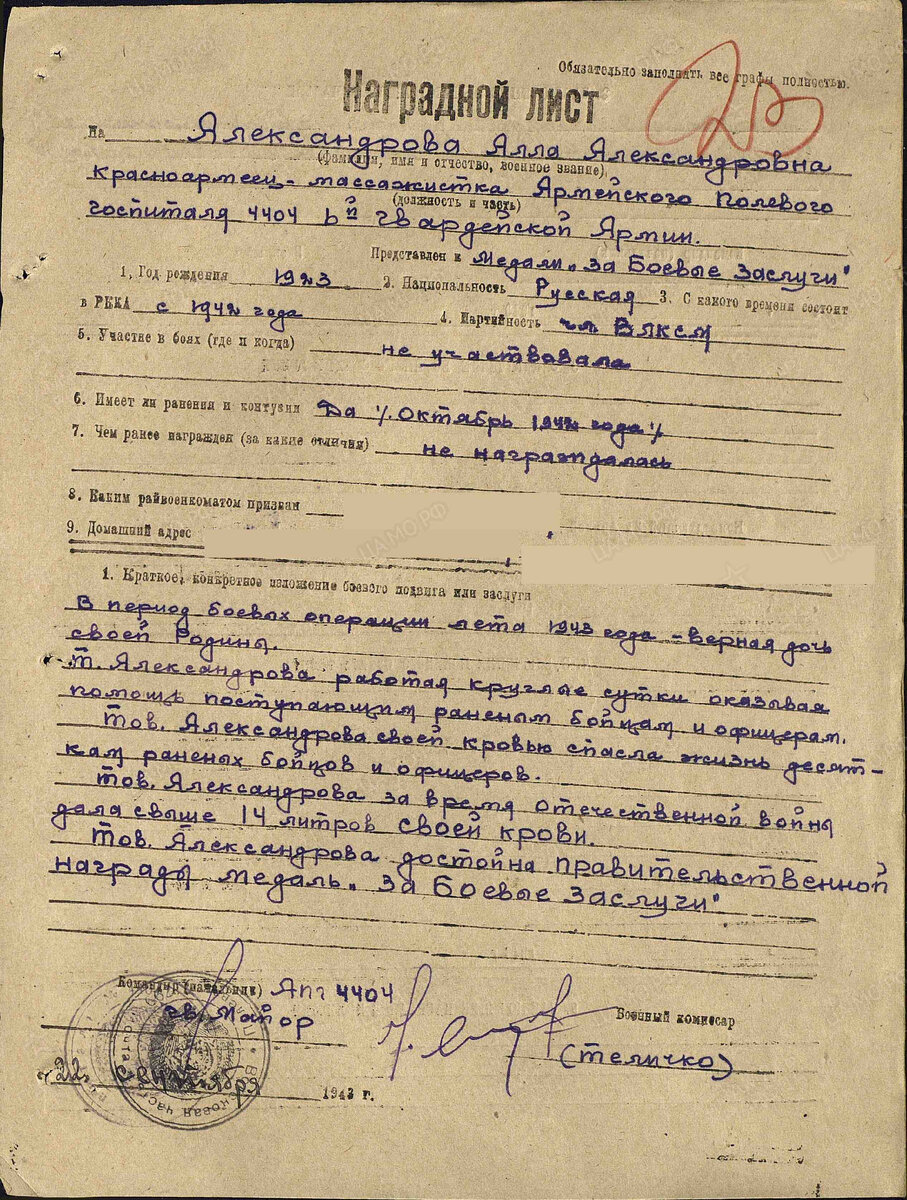 Обязательно заполнять все графы полностью.
Наградной лист
На Александрова Алла Александровна
(фамилия, имя и отчество, военное звание)
красноармеец - массажистка Армейского Полевого
(должность и часть)
госпиталя 4404 6й гвардейской Армии.
Представлен к Медали „За Боевые Заслуги"
1. Год рождения 1923 2. Национальность Русская 3. С какого времени состоит
в РККА с 1942 года 4. Партийность чл ВЛКСМ
5. Участие в боях (где и когда) не участвовала
6. Имеет ли ранения и контузии Да /. Октябрь 1942 года /.
7. Чем ранее награжден (за какие отличия) не награждалась
8. Каким райвоенкоматом призван
9. Домашний адрес
1. Краткое, конкретное изложение боевого подвига или заслуги
В период боевых операции лета 1943 года - верная дочь
своей Родины.
Т. Александрова работая круглые сутки оказывая
помощь поступающим раненым бойцам и офицерам.
Тов. Александрова своей кровью спасла жизнь десят-
кам раненых бойцов и офицеров.
Тов. Александрова за время отечественной войны
дала свыше 14 литров своей крови.
Тов. Александрова достойна правительственной
награды медаль „За Боевые Заслуги"
Командир (начальник) АПГ 4404
гв. Майор
Военный комиссар
(Теличко)
1943 г.
ЦАМО.РФ